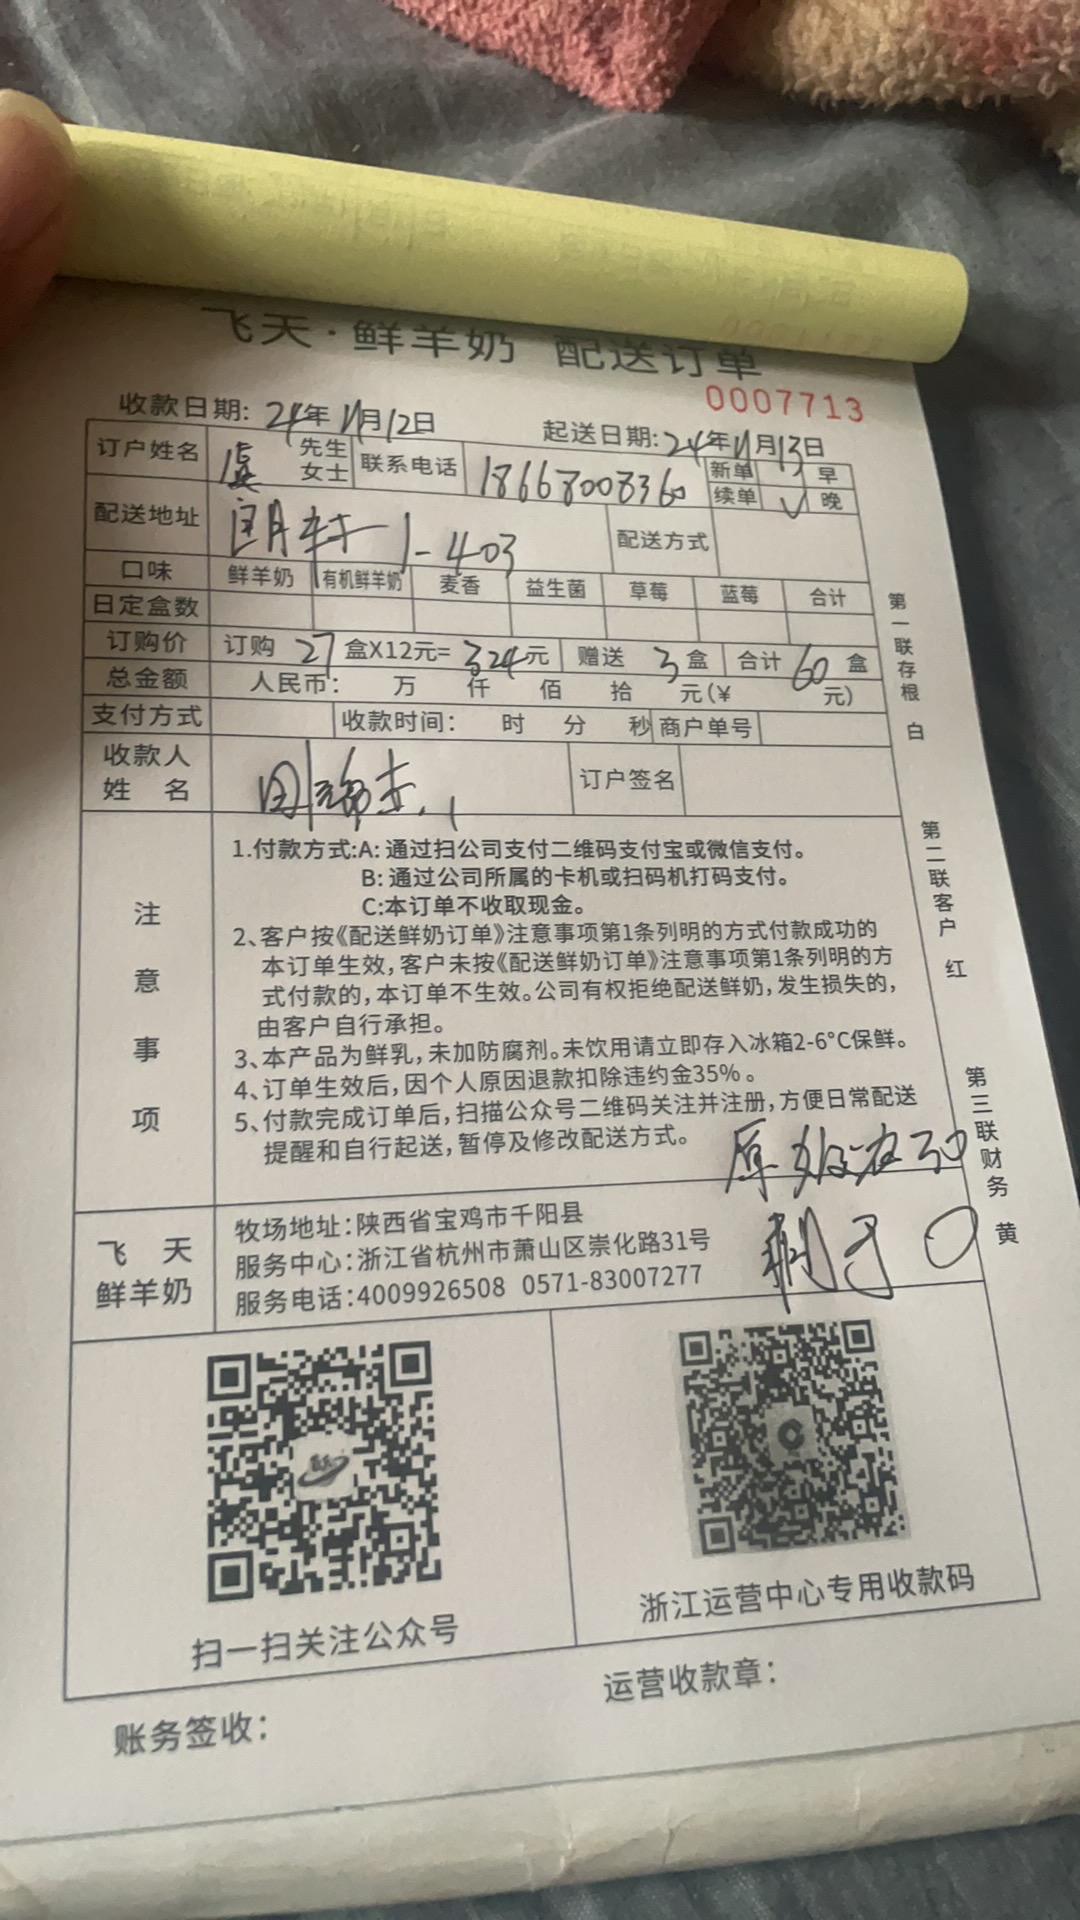 飞天·鲜羊奶 配送订单
0007713
收款日期: 24年11月12日 起送日期: 24年11月13日
订户姓名 虞 先生 女士 联系电话 18667008360 新单 早 续单 √ 晚
配送地址 朗轩 1-403 配送方式
口味 鲜羊奶 有机鲜羊奶 麦香 益生菌 草莓 蓝莓 合计
日定盒数
订购价 订购 27 盒X12元= 324元 赠送 3 盒 合计 60 盒
总金额 人民币: 万 仟 佰 拾 元(¥ 元)
支付方式 收款时间: 时 分 秒 商户单号
收款人
姓 名 订户签名
注意事项
1.付款方式:A: 通过扫公司支付二维码支付宝或微信支付。
B: 通过公司所属的卡机或扫码机打码支付。
C:本订单不收取现金。
2、客户按《配送鲜奶订单》注意事项第1条列明的方式付款成功的
本订单生效,客户未按《配送鲜奶订单》注意事项第1条列明的方
式付款的,本订单不生效。公司有权拒绝配送鲜奶,发生损失的,
由客户自行承担。
3、本产品为鲜乳,未加防腐剂。未饮用请立即存入冰箱2-6°C保鲜。
4、订单生效后,因个人原因退款扣除违约金35%。
5、付款完成订单后,扫描公众号二维码关注并注册,方便日常配送
提醒和自行起送,暂停及修改配送方式。
飞 天
鲜羊奶
牧场地址:陕西省宝鸡市千阳县
服务中心:浙江省杭州市萧山区崇化路31号
服务电话:4009926508 0571-83007277
扫一扫关注公众号
浙江运营中心专用收款码
账务签收:
运营收款章:
第一联存根 白
第二联客户 红
第三联财务 黄